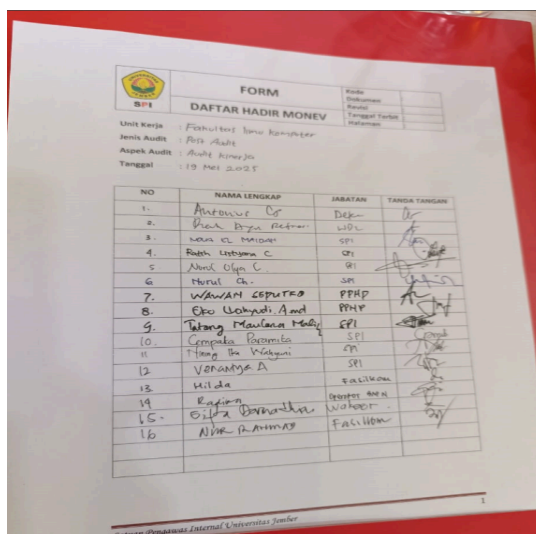 UNIVERSITAS JEMBER
SPI
FORM
DAFTAR HADIR MONEV
Kode Dokumen
Revisi
Tanggal Terbit
Halaman
Unit Kerja : Fakultas Ilmu Komputer
Jenis Audit : Post Audit
Aspek Audit : Audit Kinerja
Tanggal : 19 Mei 2025
NO NAMA LENGKAP JABATAN TANDA TANGAN
1. Antonius Dek
2. Ayu
3. NOVA EL MAIDAH SPI
4. Ratih C. SPI
5 Nurul C. SPI
6 Nurul Ch. SPI
7. WAWAN SEPUTRO PPHP
8. Eko Wahyudi, A.md PPHP
9. Tatang Maulana Malik SPI
10. Cempaka Paramita SPI
11 Ika Wahyuni
12 A SPI
13 Hilda Fasilkom
14 Operator
15.
16 NUR RAHMAD Fasilkom
1
Satuan Pengawas Internal Universitas Jember